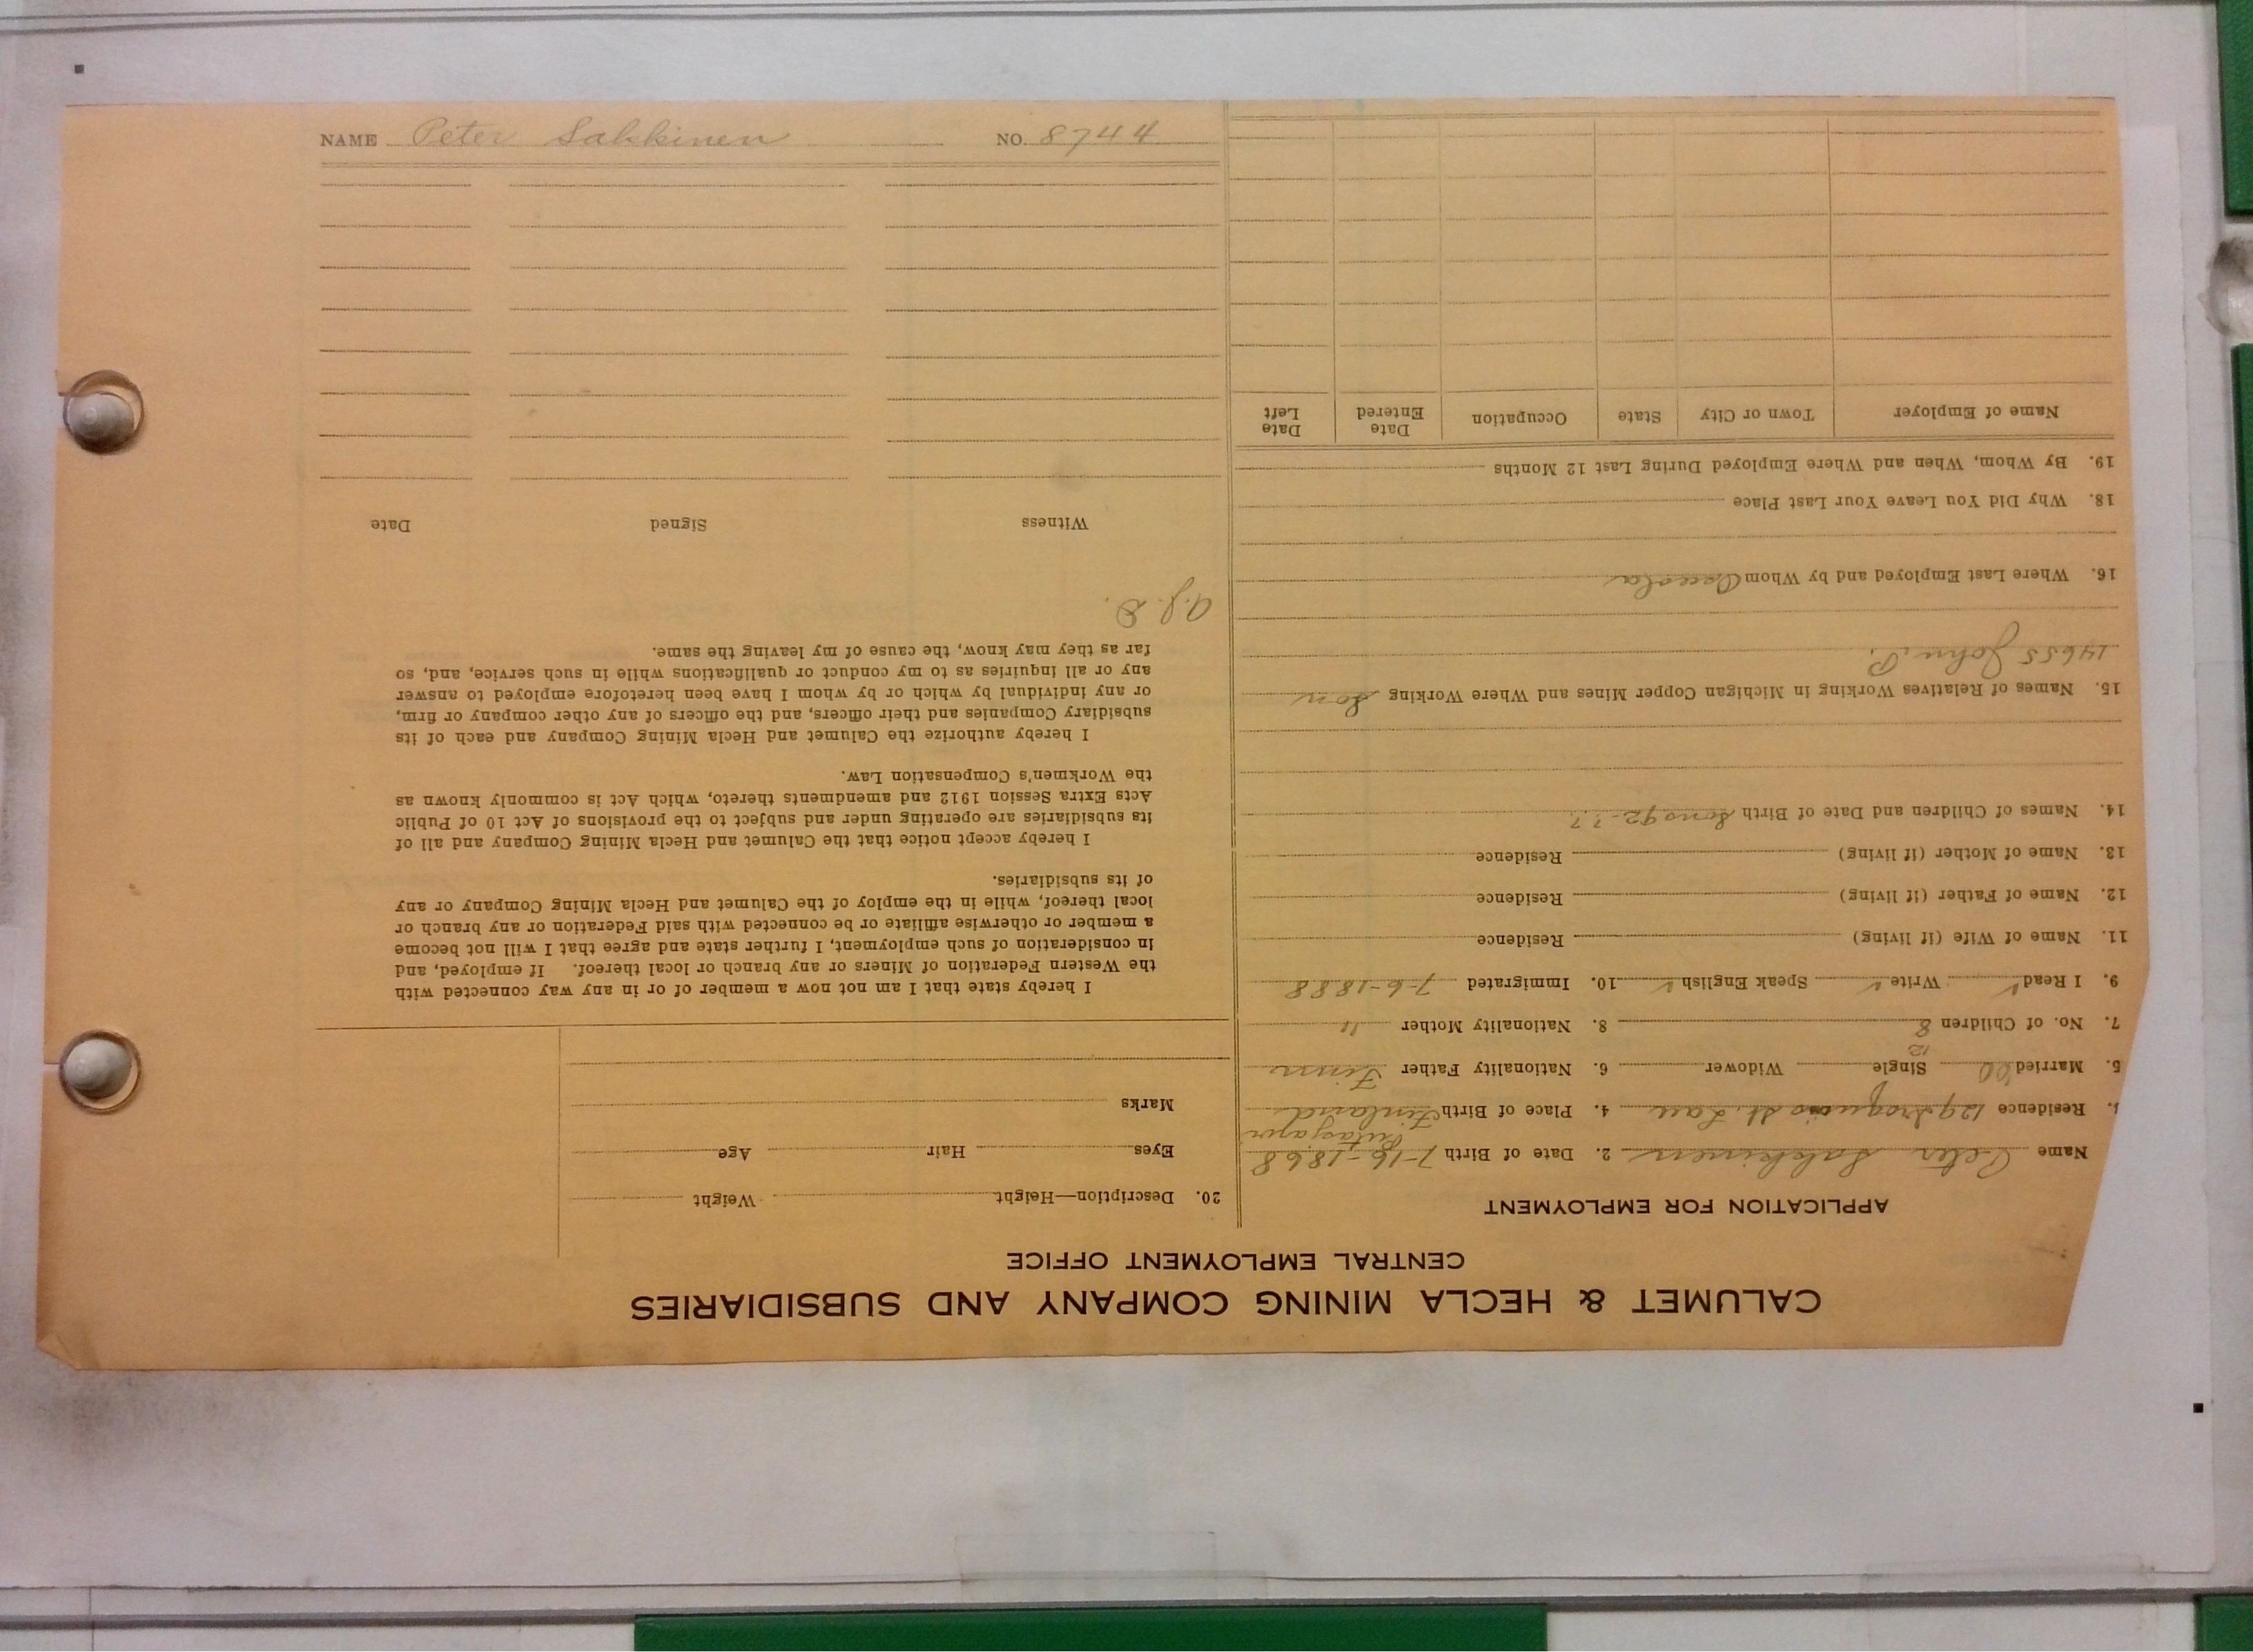 NAME Peter Sakkinen NO. 8744
CALUMET & HECLA MINING COMPANY AND SUBSIDIARIES
CENTRAL EMPLOYMENT OFFICE
APPLICATION FOR EMPLOYMENT
Name Peter Sakkinen 2. Date of Birth 7-16-1868
Residence 129 Iroquois St. Lau 4. Place of Birth Finland
5. Married Single Widower 6. Nationality Father Finn
12
7. No. of Children 8 8. Nationality Mother "
9. I Read ✓ Write ✓ Speak English ✓ 10. Immigrated 7-6-1888
11. Name of Wife (if living) Residence
12. Name of Father (if living) Residence
13. Name of Mother (if living) Residence
14. Names of Children and Date of Birth
15. Names of Relatives Working in Michigan Copper Mines and Where Working Son
14655 John P.
16. Where Last Employed and by Whom Osceola
18. Why Did You Leave Your Last Place
19. By Whom, When and Where Employed During Last 12 Months
Name of Employer Town or City State Occupation Date Entered Date Left
20. Description—Height Weight
Eyes Hair Age
Marks
I hereby state that I am not now a member of or in any way connected with
the Western Federation of Miners or any branch or local thereof. If employed, and
in consideration of such employment, I further state and agree that I will not become
a member or otherwise affiliate or be connected with said Federation or any branch or
local thereof, while in the employ of the Calumet and Hecla Mining Company or any
of its subsidiaries.
I hereby accept notice that the Calumet and Hecla Mining Company and all of
its subsidiaries are operating under and subject to the provisions of Act 10 of Public
Acts Extra Session 1912 and amendments thereto, which Act is commonly known as
the Workmen's Compensation Law.
I hereby authorize the Calumet and Hecla Mining Company and each of its
subsidiary Companies and their officers, and the officers of any other company or firm,
or any individual by which or by whom I have been heretofore employed to answer
any or all inquiries as to my conduct or qualifications while in such service, and, so
far as they may know, the cause of my leaving the same.
Witness Signed Date